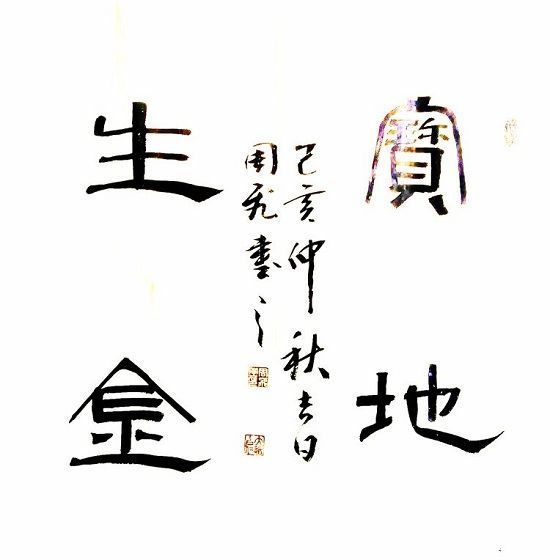 寶地
生金
己亥仲秋吉日
周飛書之